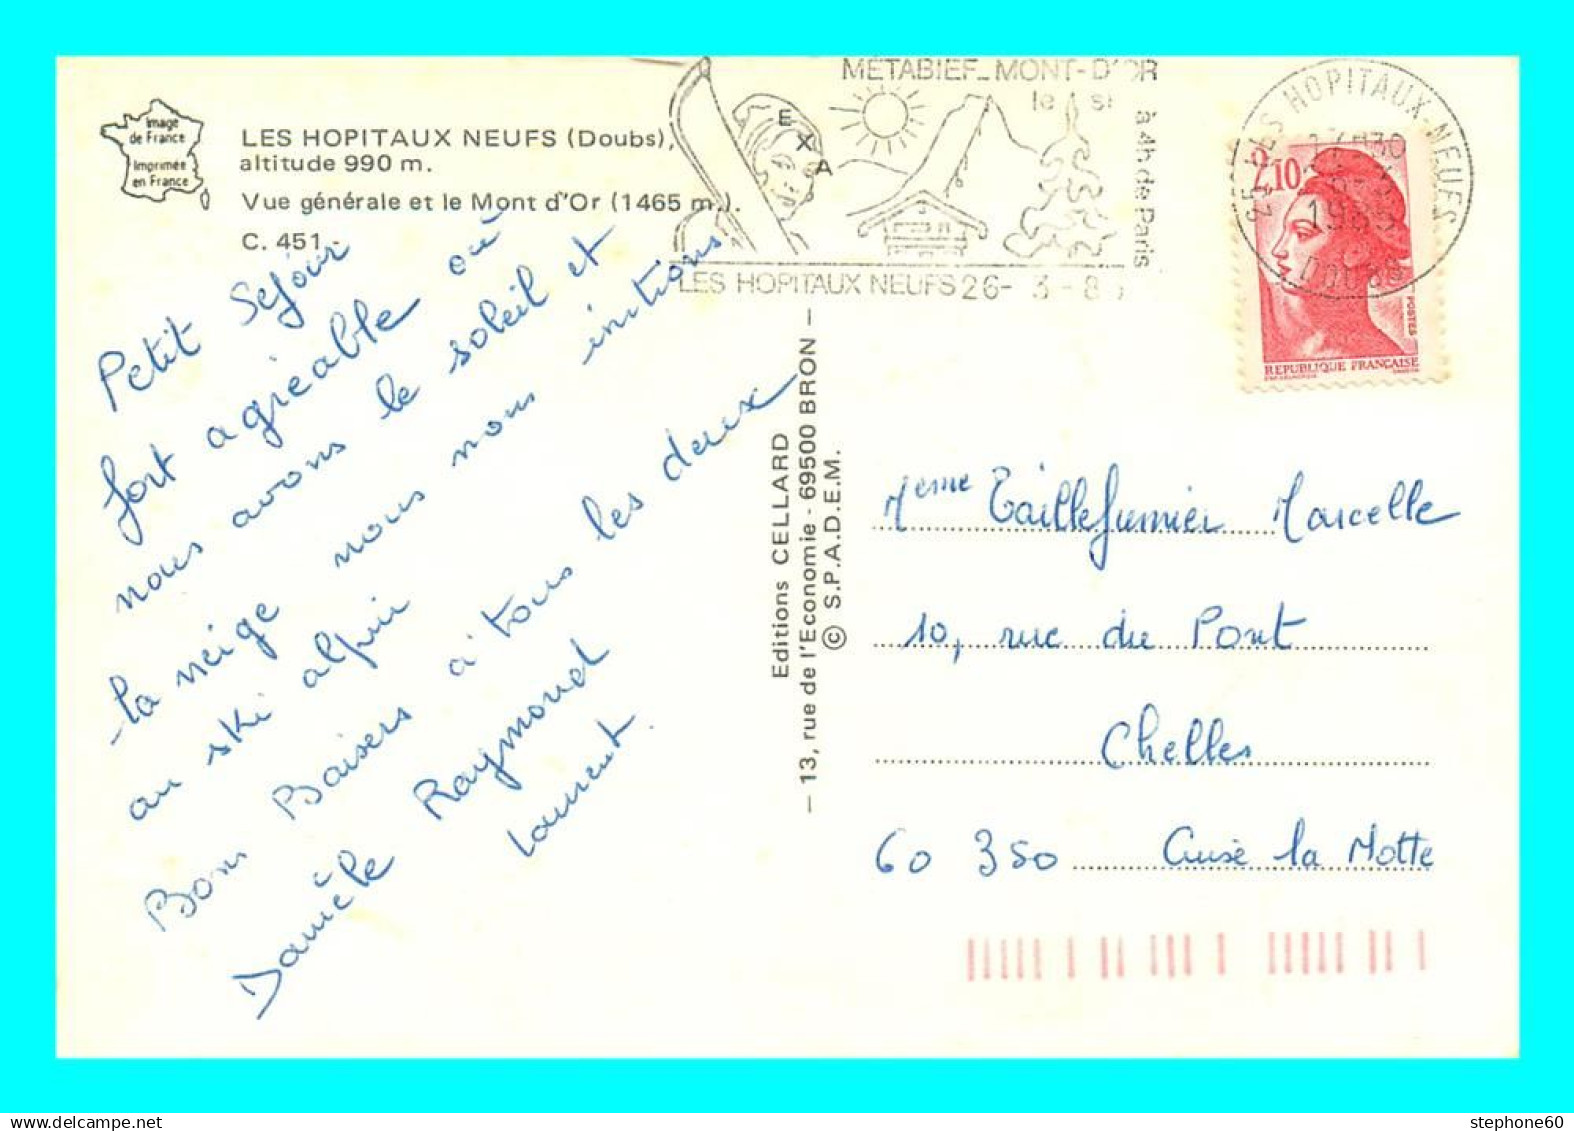 Image
de France
Imprimée
en France
LES HOPITAUX NEUFS (Doubs),
altitude 990 m.
Vue générale et le Mont d'Or (1465 m.).
C. 451
METABIEF_MONT-D'OR
le si
EXA
à 4h. de Paris
LES HOPITAUX NEUFS 26- 3 - 8
25 LES HOPITAUX-NEUFS
DOUBS
2,10
POSTES
REPUBLIQUE FRANÇAISE
Petit Séjour
fort agréable où
nous avons le soleil et
la neige nous nous initions
au ski alpin
Bons Baisers à tous les deux
Danièle Raymond
Laurent.
Editions CELLARD
— 13, rue de l'Economie - 69500 BRON —
© S.P.A.D.E.M.
Meme Taillefumier Marcelle
10, rue du Pont
Chelles
60 350 Cuise la Motte
stephone60